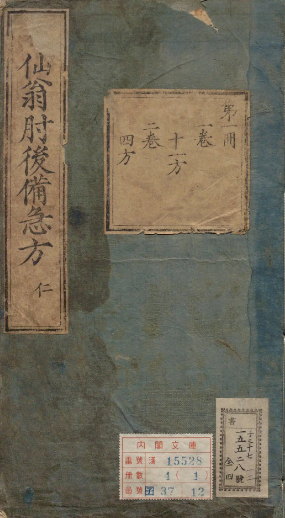 仙翁肘後備急方 仁
第一冊
一卷
十一方
二卷
四方
內閣文庫
番號 漢 15528
冊數 4 (1)
函號 函 37 12
書
一五五二八號
全四